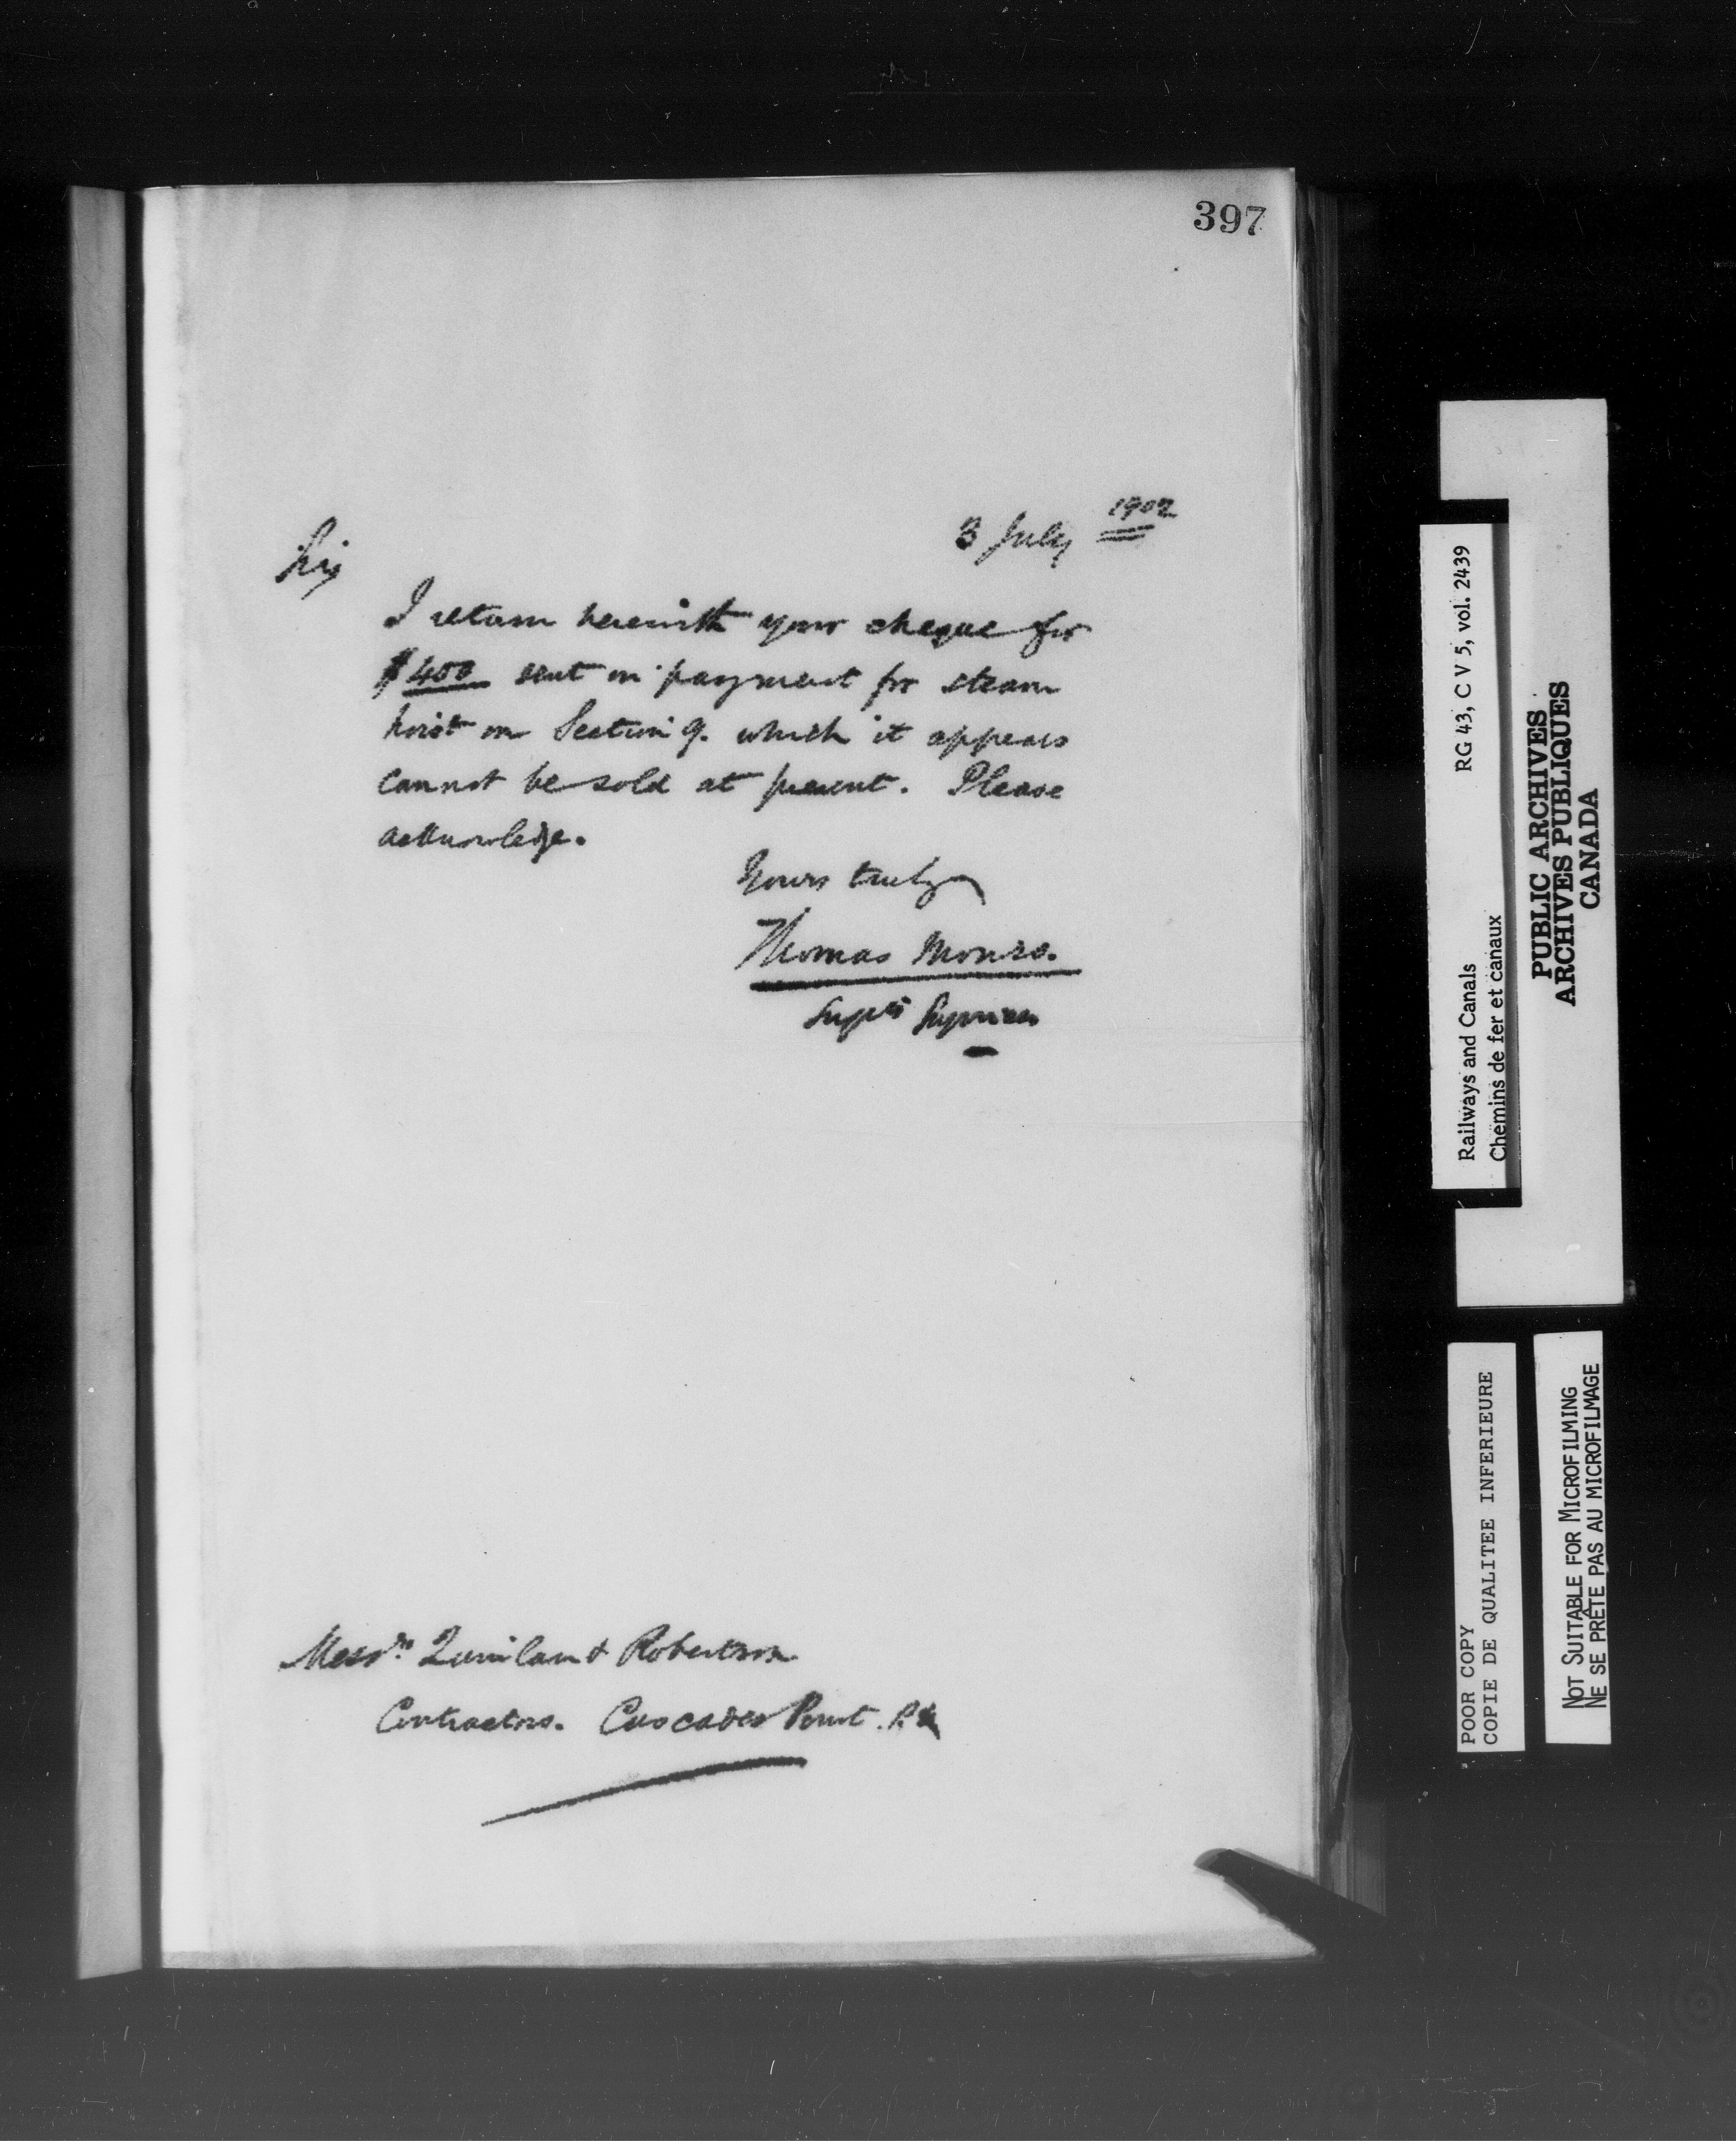 397
3 July 1902
Sir
I return herewith your cheque for
$400 sent in payment for steam
hoist on Section 9. which it appears
cannot be sold at present. Please
acknowledge.
Yours truly
Thomas Monro.
Supt Engineer
Messrs Quinlan & Robertson
Contractors. Cascades Point. P.Q.
Railways and Canals RG 43, C V 5, vol. 2439
Chemins de fer et canaux
PUBLIC ARCHIVES
ARCHIVES PUBLIQUES
CANADA
POOR COPY
COPIE DE QUALITEE INFERIEURE
NOT SUITABLE FOR MICROFILMING
NE SE PRÊTE PAS AU MICROFILMAGE